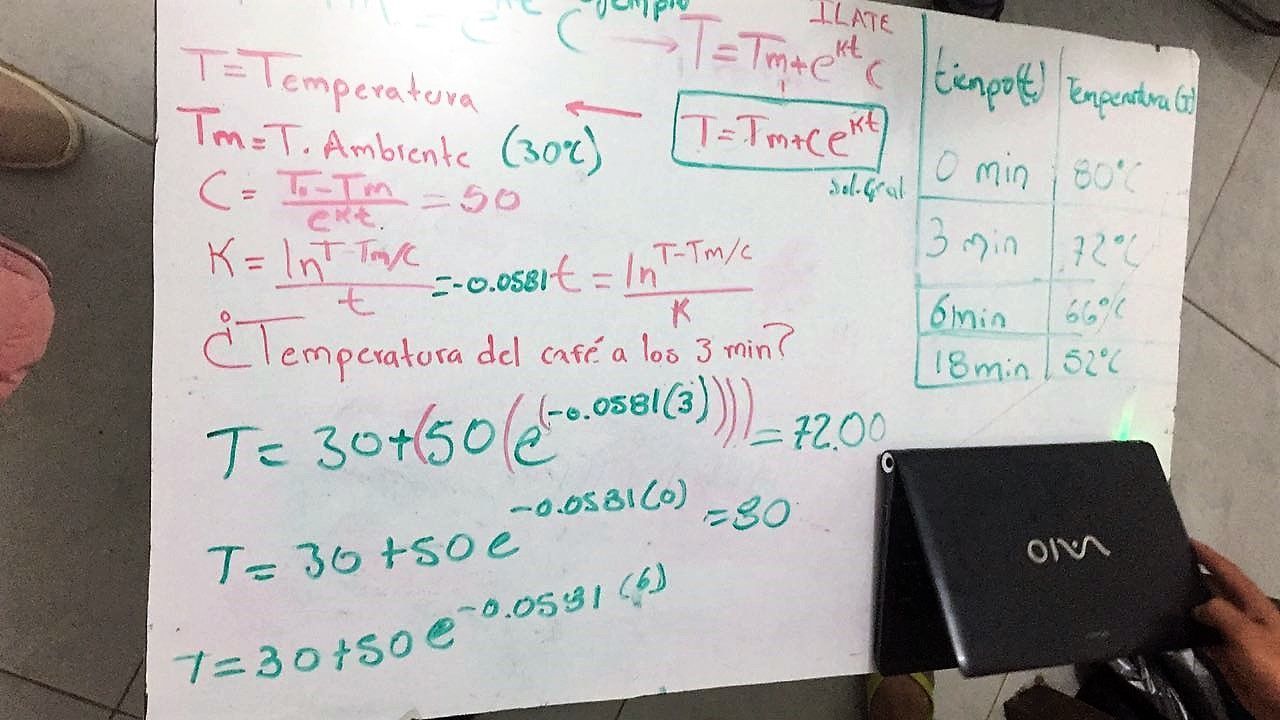 ejemplo
C → T=Tm+e^kt C
ILATE
T=Temperatura
Tm=T. Ambiente (30℃)
T=Tm+Ce^kt
sol.Gral
C = T₀-Tm/e^kt. = 50
K = ln^T-Tm/C / t = -0.0581
t = ln^T-Tm/C / K
¿Temperatura del café a los 3 min?
T= 30+(50(e^(-0.0581(3)))) = 72.00
T= 30+50e^-0.0581(0) = 80
T=30+50e^-0.0581(6)
tiempo(t) Temperatura(T)
0 min 80°C
3 min 72°C
6min 66°C
18min 52°C
VAIO